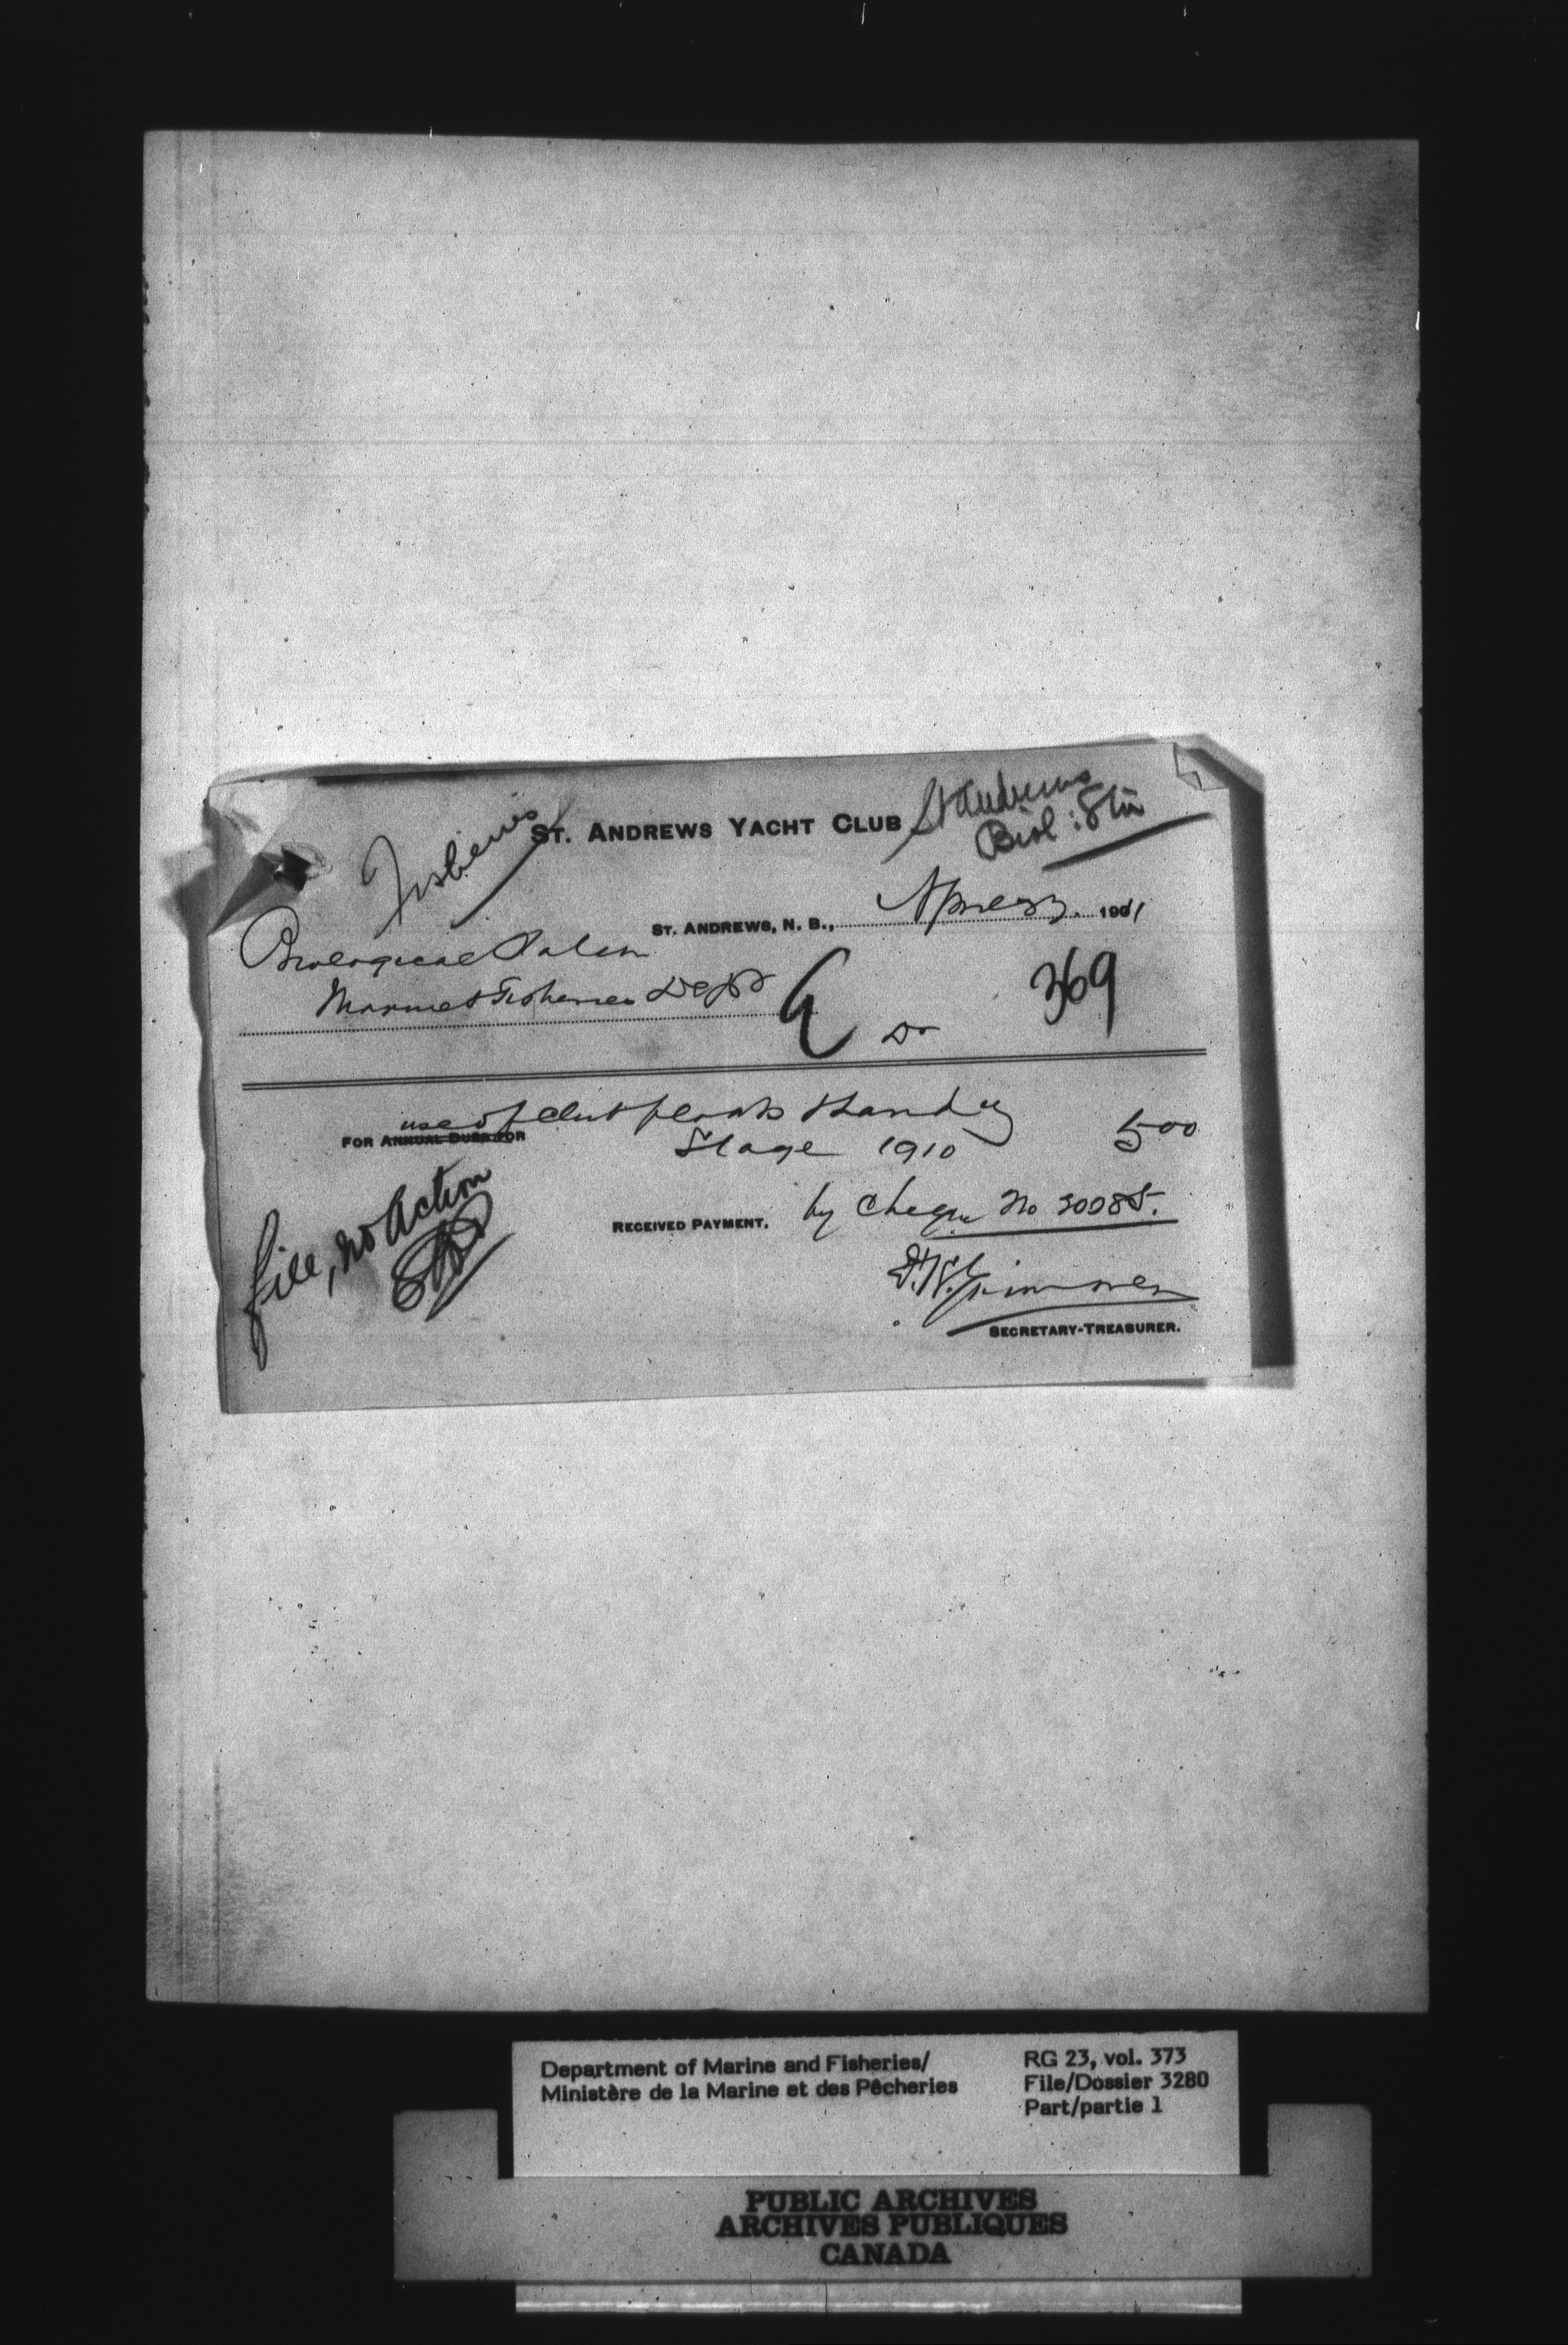 Fisheries
St. Andrews Yacht Club
St Andrews
Biol: Stn
St. Andrews, N. B., 1901
Biological
Marine & Fisheries Dept
Dr
369
use of club floats
For Annual Dues for
Stage 1910 5 00
file, no action
Received Payment, by Cheque No 30085.
Secretary-Treasurer.
Department of Marine and Fisheries/
Ministère de la Marine et des Pêcheries
RG 23, vol. 373
File/Dossier 3280
Part/partie 1
PUBLIC ARCHIVES
ARCHIVES PUBLIQUES
CANADA